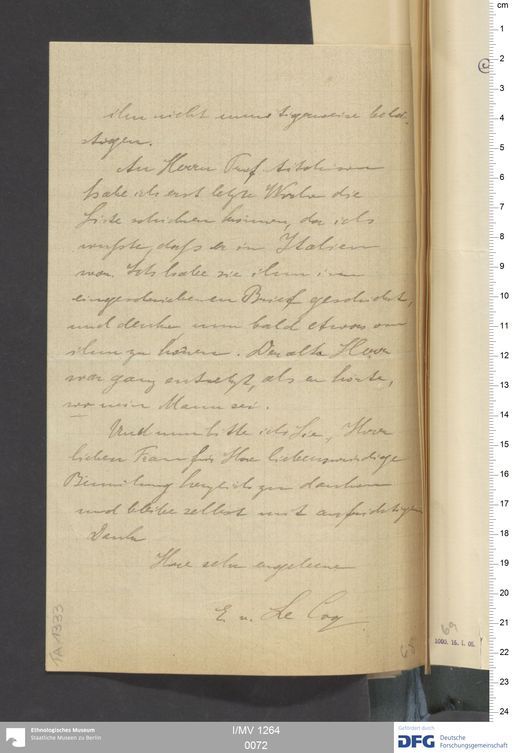 ihn nicht
An Herrn Prof
habe ich erst letzte Woche die
Liste schicken können, da ich
wußte, daß er in Italien
war. Ich habe sie ihm im
eingeschriebenen Brief geschickt,
und denke nun bald etwas von
ihm zu hören. Der alte Herr
war ganz entsetzt, als er hörte,
wo mein Mann sei.
Und nun bitte ich Sie, Ihrer
lieben Frau für Ihre liebenswürdige
Bemühung herzlich zu danken
und bleibe selbst mit aufrichtigem
Dank
Ihre sehr ergebene
E. v. Le Coq.
TA 1333
69
1000. 16. 1. 05.
cm
1
2
3
4
5
6
7
8
9
10
11
12
13
14
15
16
17
18
19
20
21
22
23
24
Ethnologisches Museum
Staatliche Museen zu Berlin
I/MV 1264
0072
Gefördert durch
DFG Deutsche
Forschungsgemeinschaft